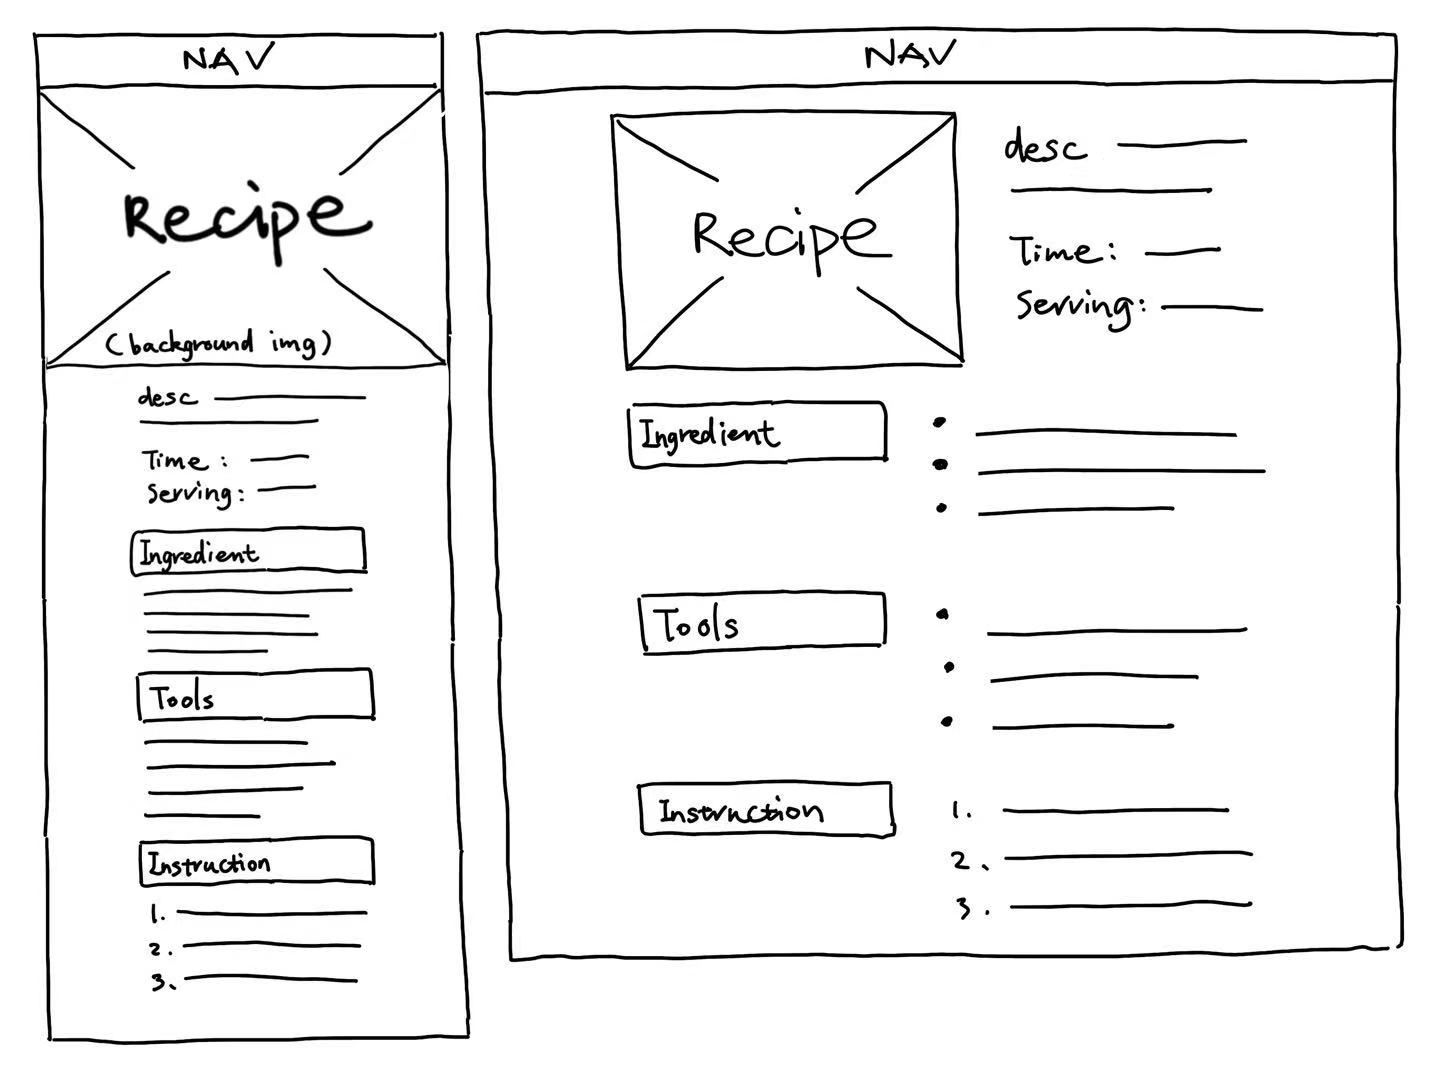 NAV
Recipe
(background img)
desc
Time :
Serving:
Ingredient
Tools
Instruction
1.
2.
3.
NAV
Recipe
desc
Time:
Serving:
Ingredient
Tools
Instruction
1.
2.
3.